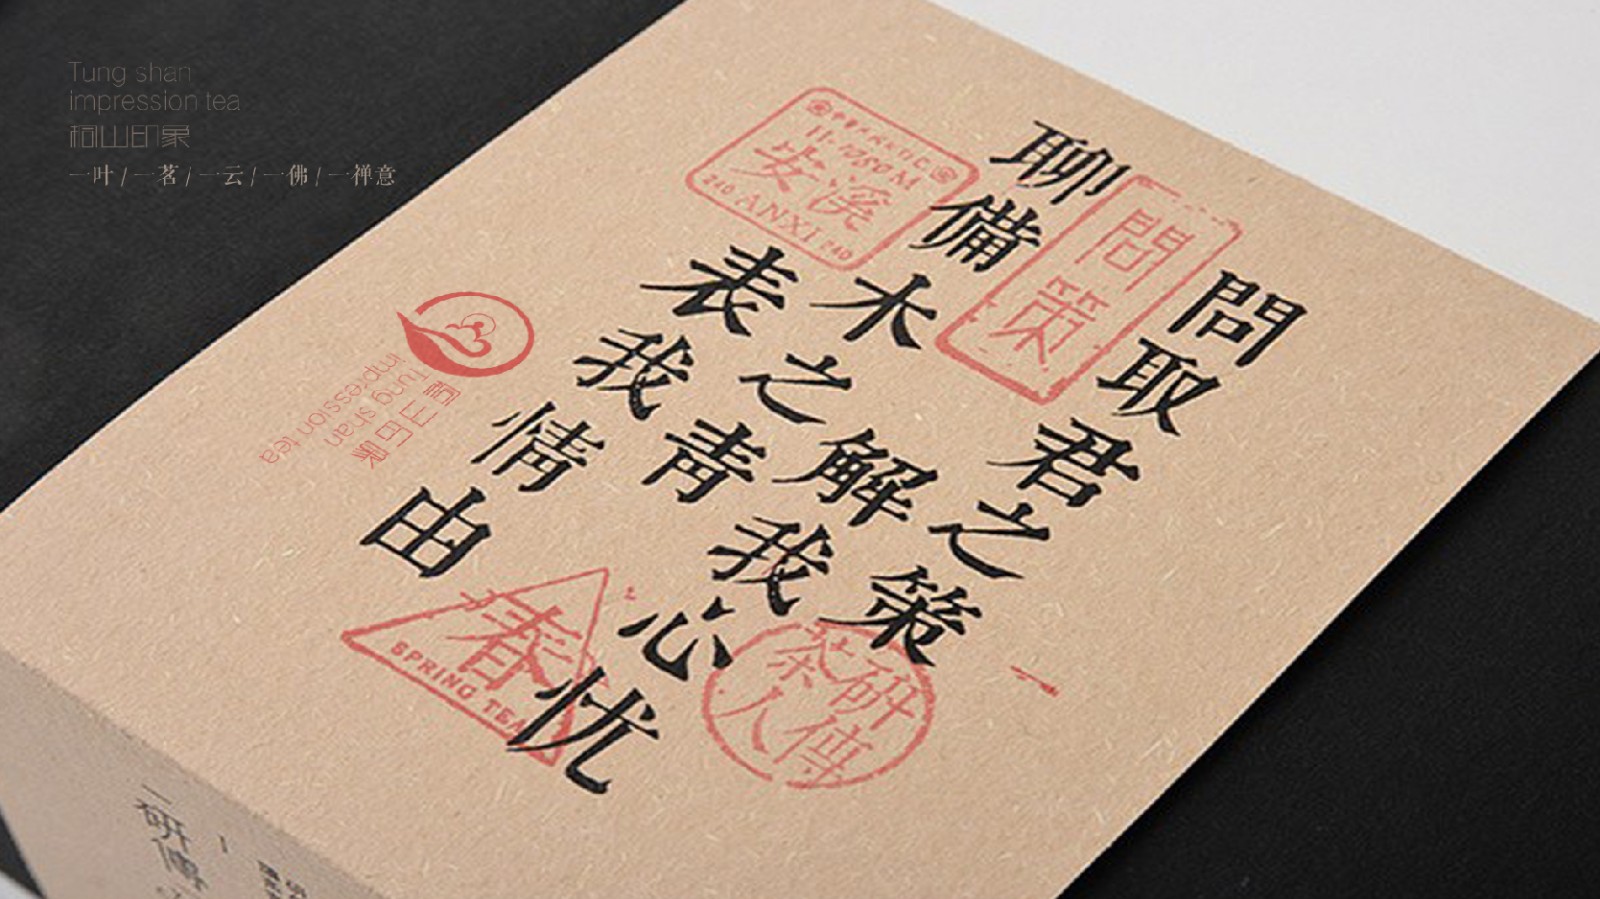 Tung shan
impression tea
桐山印象
一叶/一茗/一云/一佛/一禅意
問取君之策
聊備木之解我心忧
表我青
我情由
問策
安溪
240 ANXI 240
桐山印象
Tung shan
impression tea
春
SPRING TEA
研傳
茶人
研傳